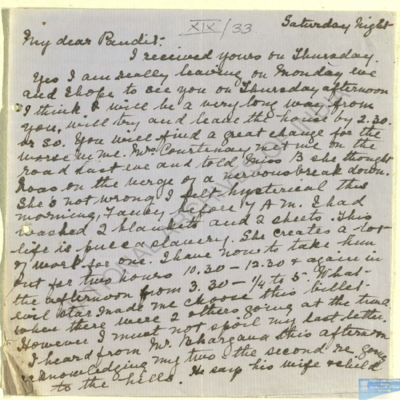 XIX/33
Saturday Night
My dear Pendit:
I received yours on Thursday.
Yes I am really leaving on Monday eve
and I hope to see you on Thursday afternoon
I think I will be a very long way from
you, will try and leave the house by 2.30
or so. You will find a great change for the
worse in me. Mrs Courtenay met me on the
road last eve and told Miss B she thought
I was on the verge of a nervous break down.
She's not wrong I felt hysterical this
morning, Fancy before 7 A.M. I had
washed 2 blankets and 2 sheets. This
life is pucca slavery. She creates a lot
of work for one. I have now to take him
out for two hours 10.30 - 12.30 & again in
the afternoon from 3.30 - 1/4 to 5. What
evil star made me choose this billet
when there were 2 others going at the time
However I must not spoil my last letter.
I heard from Mr. Bhargava this afternoon
acknowledging my two the second re going
to the hills. He says his wife & child